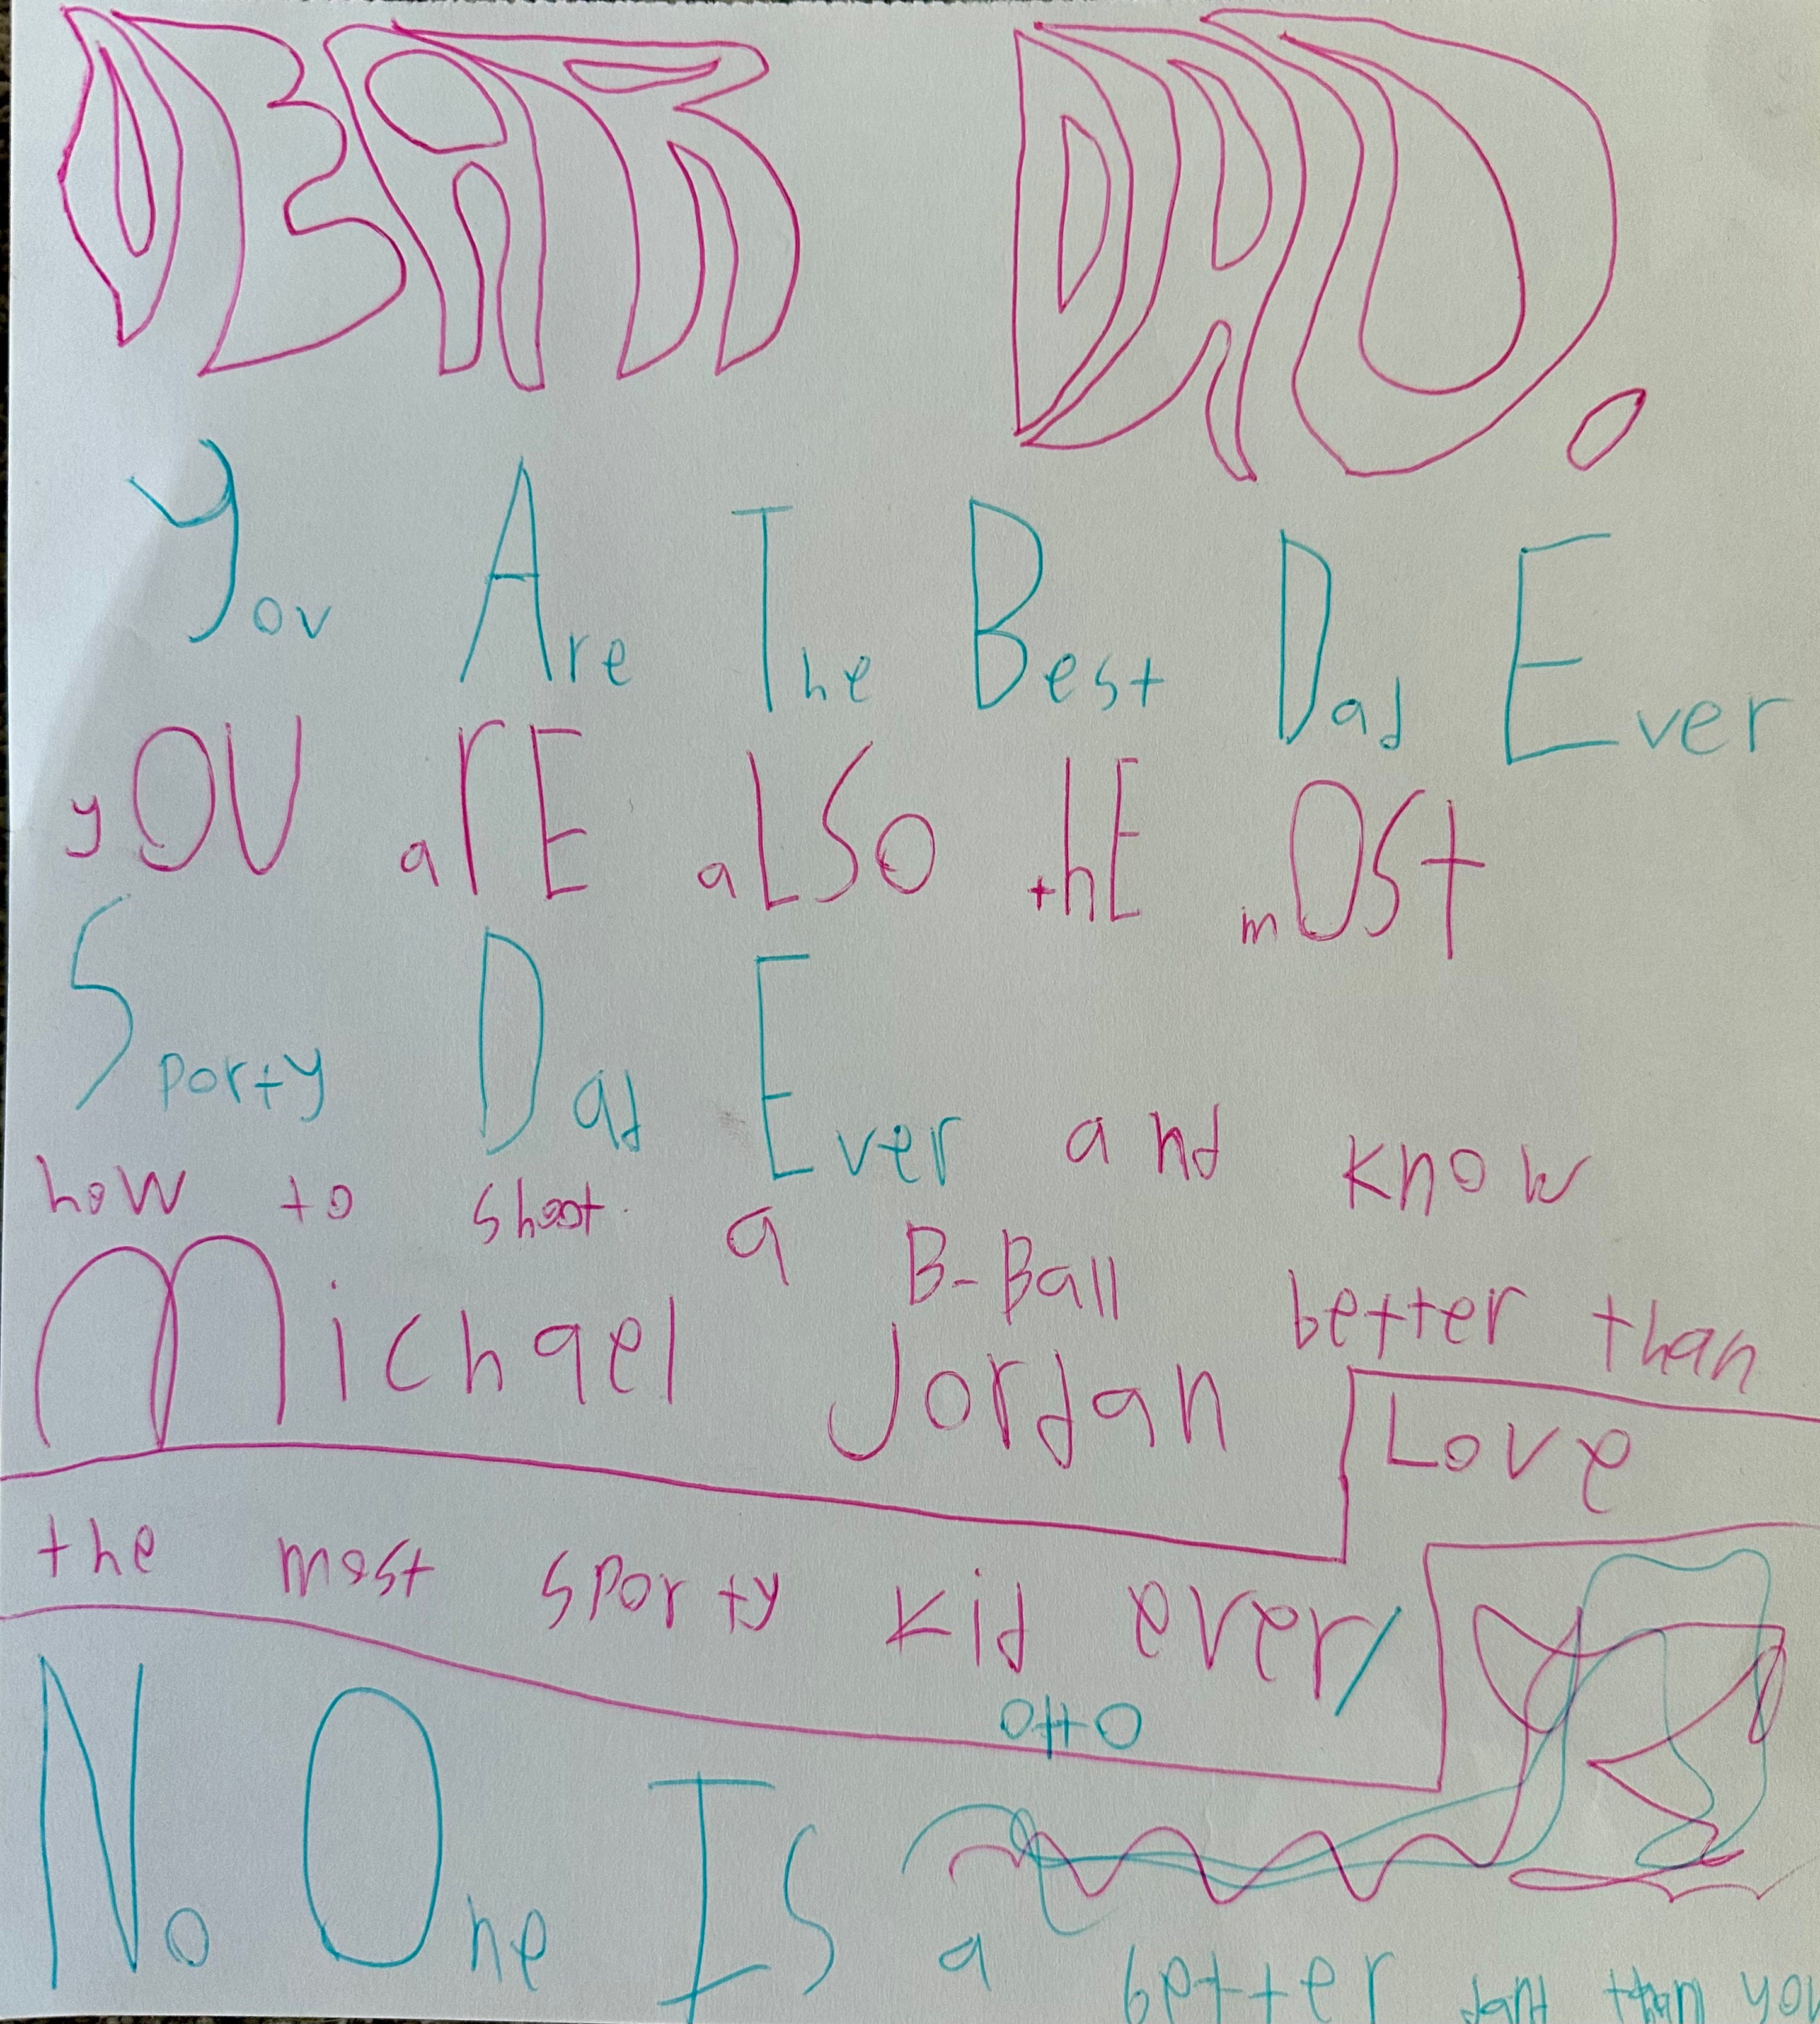 DEAR DAD.
You Are The Best Dad Ever
yOU arE aLSO thE mOST
Sporty Dad Ever and know
how to shoot a B-Ball better than
Michael Jordan
Love
the most sporty kid ever/
otto
No One Is a better than you